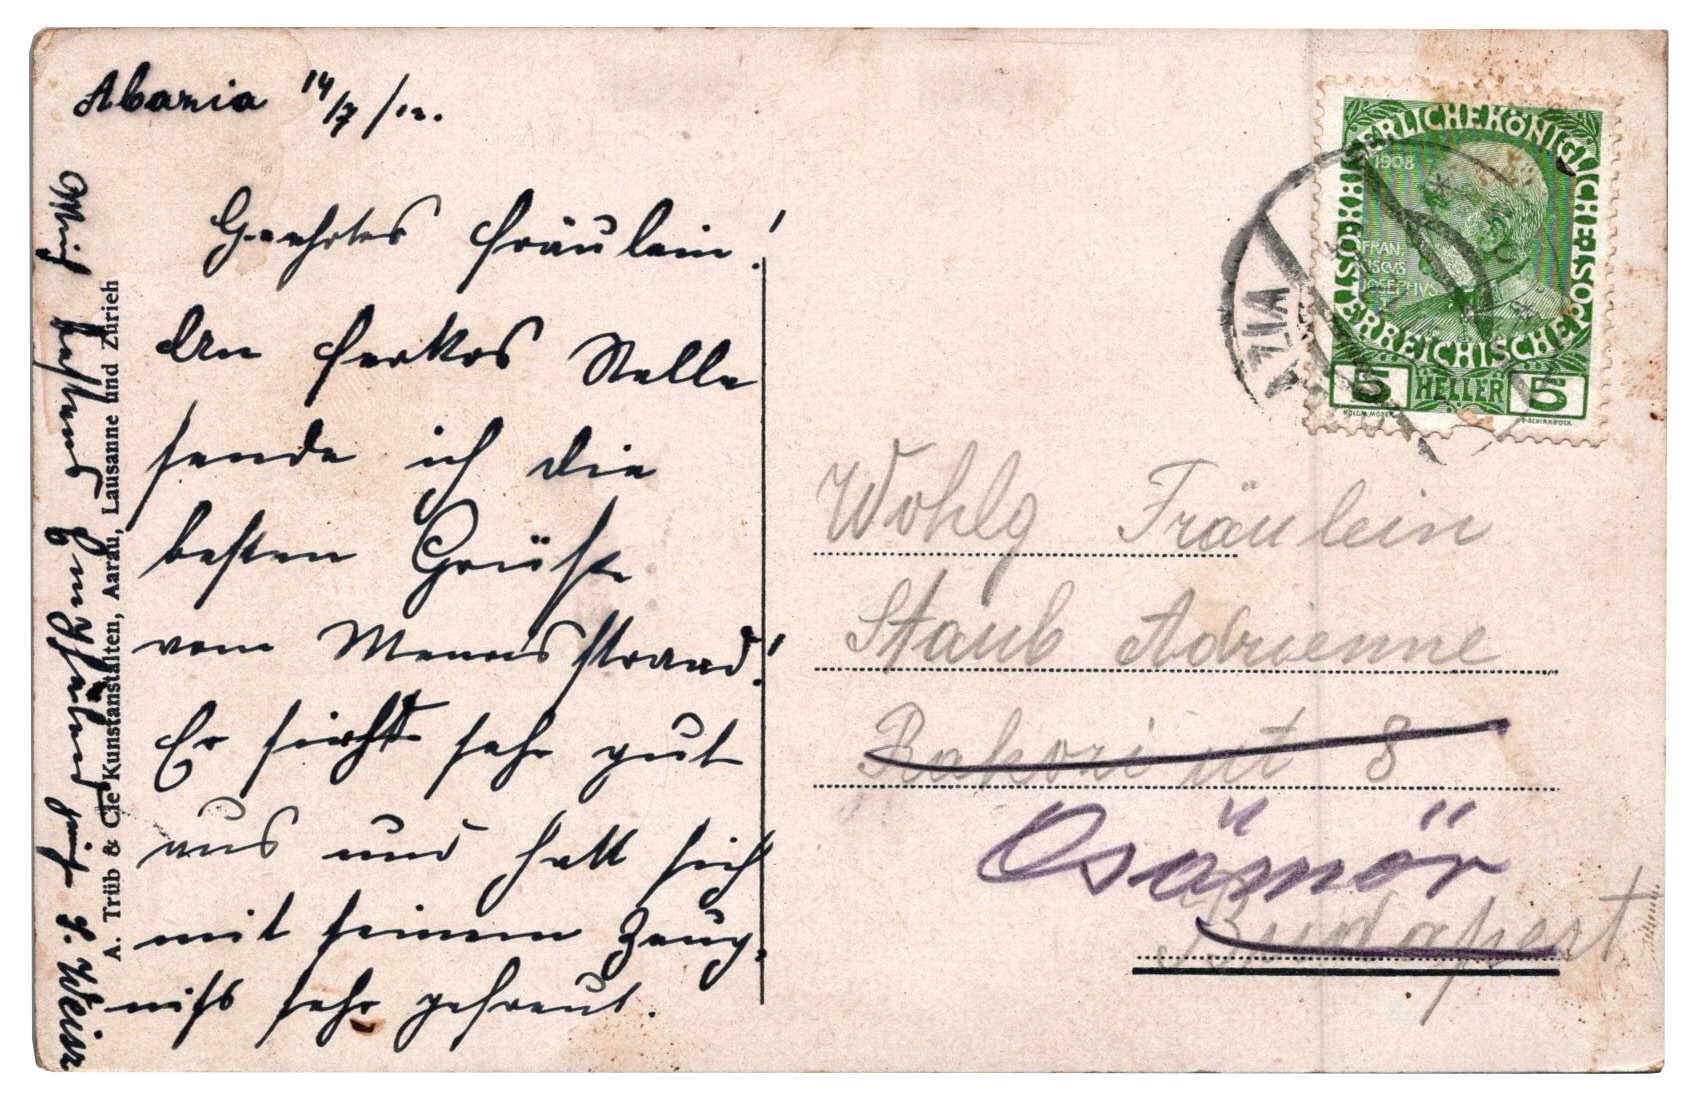 Abazia 14/7 /12.
Geehrtes Fräulein!
An Ferkos Stelle
sende ich die
besten Grüße
vom Meeresstrand!
Er sieht sehr gut
aus und hatt sich
mit seinem Zeug-
niß sehr gefreut.
Mich bestens empfehlend
J. Weisz
A. Trüb & Cie Kunstanstalten, Aarau, Lausanne und Zürich
KAISERLICHE KÖNIGLICHE ÖSTERREICHISCHE POST
1908
FRAN-
ISCVS
JOSEPHVS
I
5 HELLER 5
KOLOM. MOSER
F. SCHIRNBÖCK
AZIA
Wohlg Fräulein
Staub Adrienne
Rakozi ut 8
Csömör
Budapest